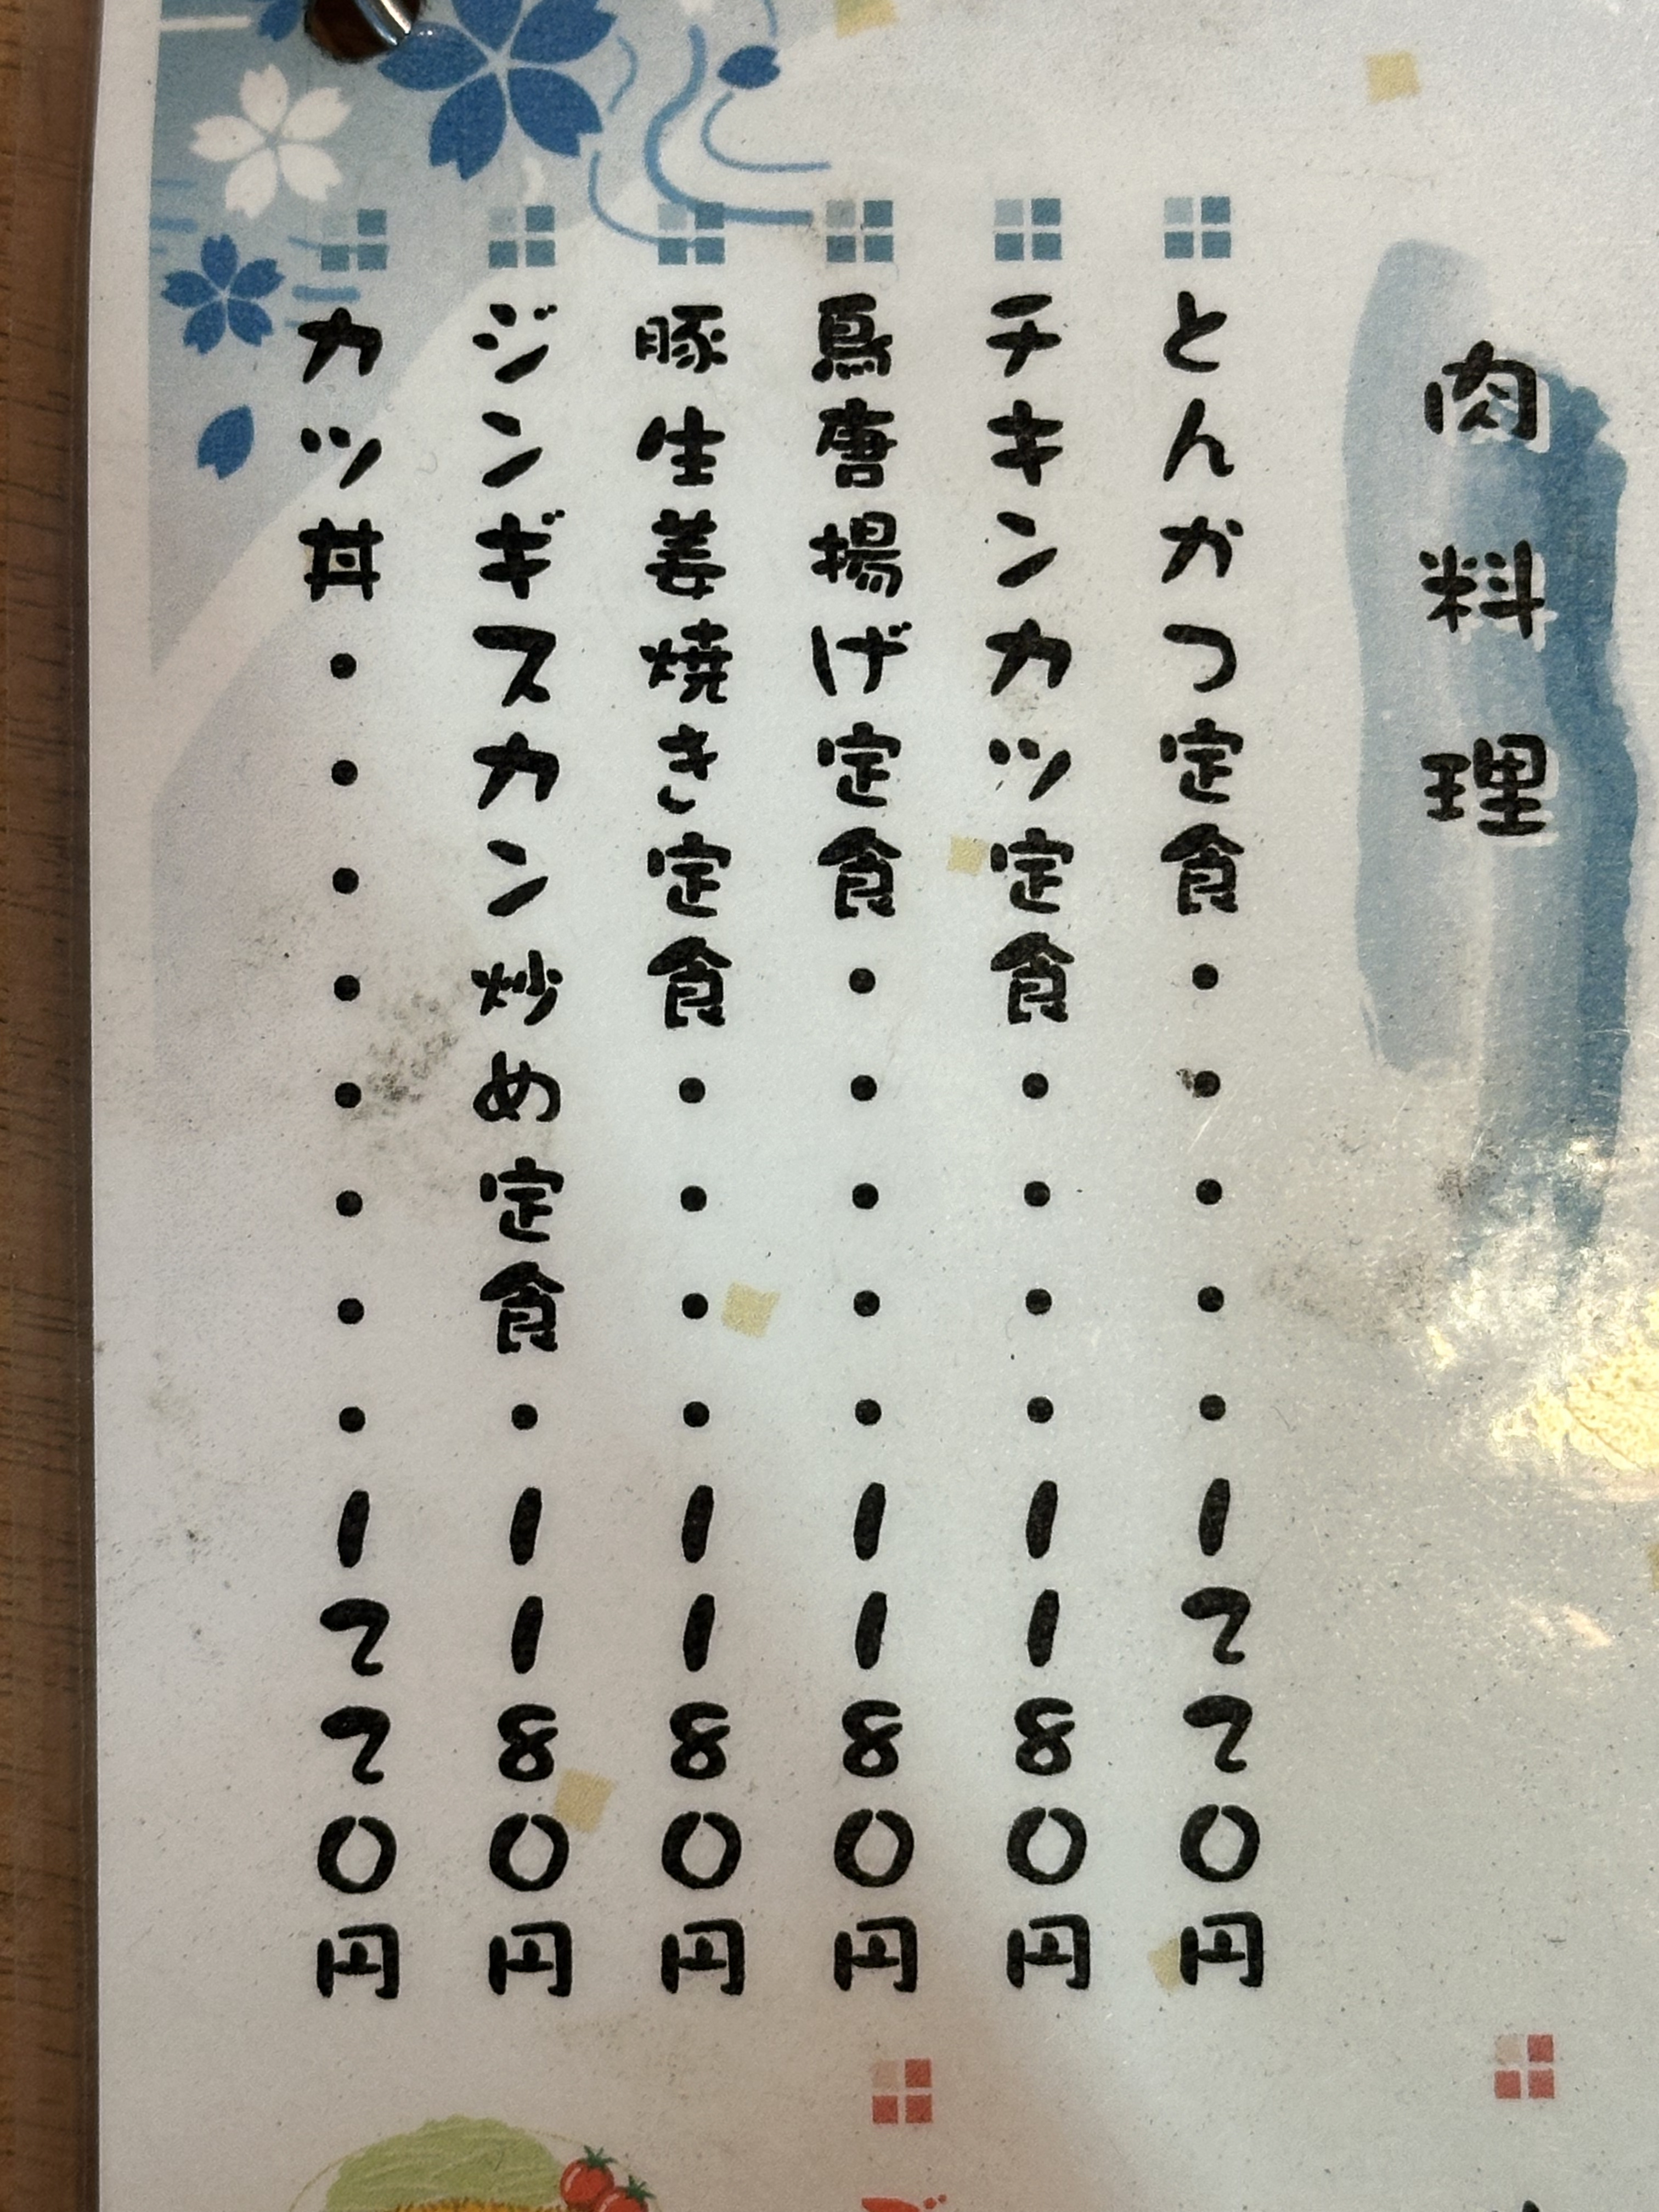 肉料理
とんかつ定食・・・・・1220円
チキンカツ定食・・・・1180円
鳥唐揚げ定食・・・・・1180円
豚生姜焼き定食・・・・1180円
ジンギスカン炒め定食・1180円
カツ丼・・・・・・・・1220円